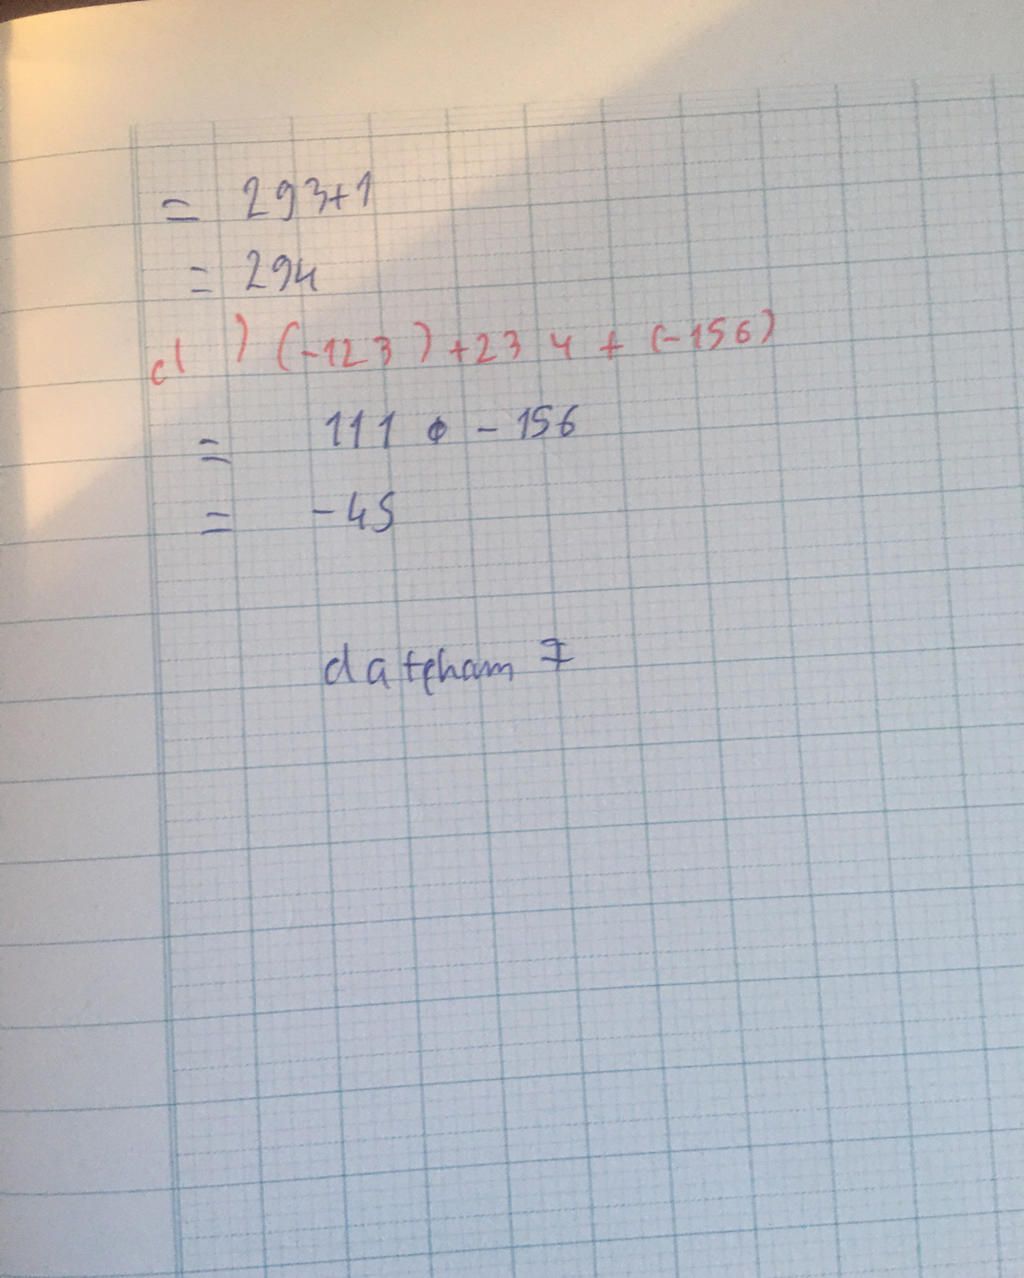 = 293+1
= 294
d) (-123) + 234 + (-156)
= 111 - 156
= -45
datpham 7